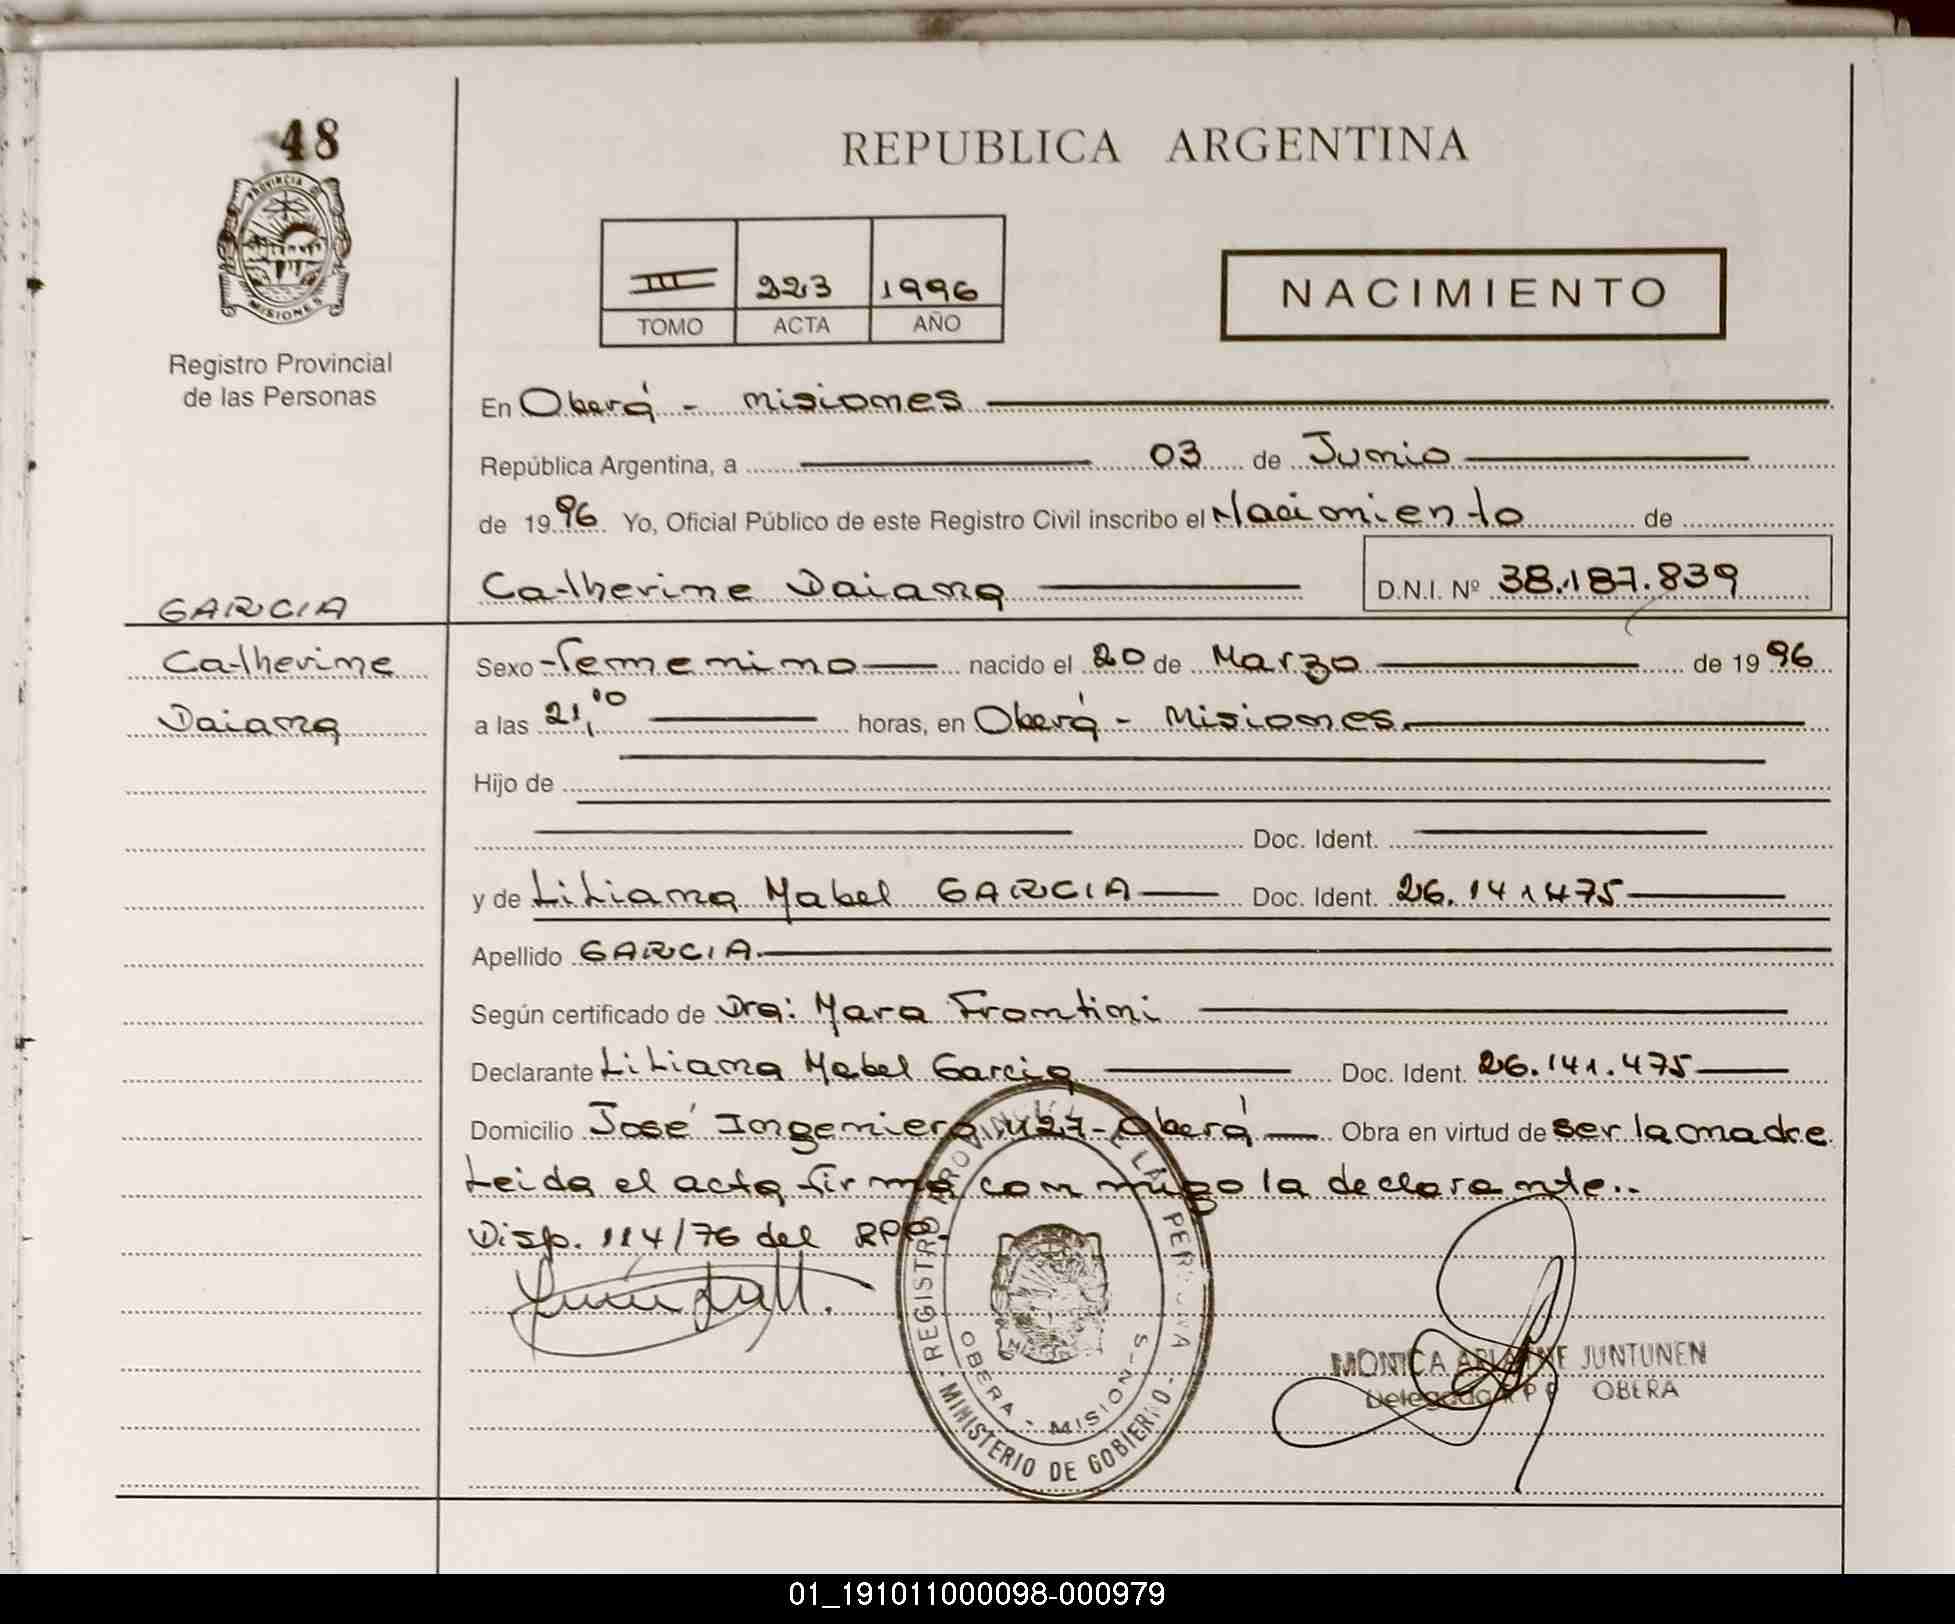 48
PROVINCIA D
MISIONES
Registro Provincial
de las Personas
REPUBLICA ARGENTINA
III 223 1996
TOMO ACTA AÑO
NACIMIENTO
En Oberá - Misiones
República Argentina, a 03 de Junio
de 1996 Yo, Oficial Público de este Registro Civil inscribo el Nacimiento de
Catherine Daiana D.N.I. Nº 38.187.839
GARCIA
Catherine
Daiana
Sexo femenino nacido el 20 de Marzo de 1996
a las 21,10 horas, en Oberá - Misiones.
Hijo de
Doc. Ident.
y de Liliana Mabel GARCIA Doc. Ident. 26.141475
Apellido GARCIA.
Según certificado de Dra: Mara Frontini
Declarante Liliana Mabel Garcia Doc. Ident. 26.141.475
Domicilio José Ingeniero 427-Oberá Obra en virtud de ser la madre.
Leida el acta firma conmigo la declarante..
Disp. 114/76 del RPP.
REGISTRO PROVINCIAL DE LAS PERSONAS
OBERA - MISIONES
- MINISTERIO DE GOBIERNO -
MONICA ARIANNE JUNTUNEN
Delegada R P P OBERA
01_191011000098-000979